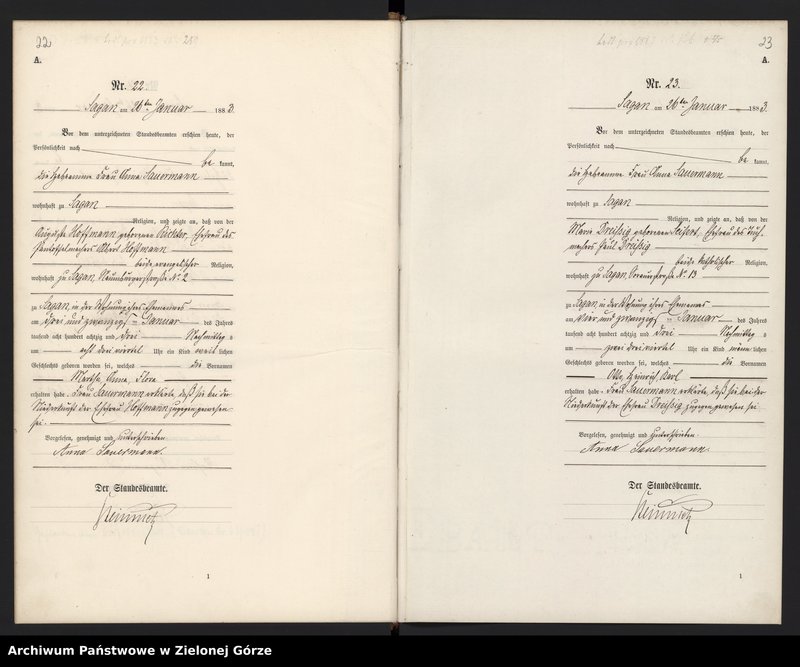 22
A.
Nr. 22.
Sagan am 26ten Januar 1883.
Vor dem unterzeichneten Standesbeamten erschien heute, der
Persönlichkeit nach
be kannt,
die Hebamme Frau Anna Sauermann
wohnhaft zu Sagan
Religion, und zeigte an, daß von der
Auguste Hoffmann geborenen Ehefrau des
Albert Hoffmann
beide evangelischer Religion,
wohnhaft zu Sagan, No 2
zu Sagan, in der Wohnung ihres Ehemannes
am drei und zwanzigsten Januar des Jahres
tausend acht hundert achtzig und drei Nachmittag s
um acht drei viertel Uhr ein Kind weib lichen
Geschlechts geboren worden sei, welches die Vornamen
Martha, Anna, Flora
erhalten habe. Frau Sauermann erklärte, daß sie bei der
Niederkunft der Ehefrau Hoffmann zugegen gewesen
sei.
Vorgelesen, genehmigt und unterschrieben
Anna Sauermann.
Der Standesbeamte.
1
23
A.
Nr. 23.
Sagan am 26ten Januar 1883.
Vor dem unterzeichneten Standesbeamten erschien heute, der
Persönlichkeit nach
be kannt,
die Hebamme Frau Anna Sauermann
wohnhaft zu Sagan
Religion, und zeigte an, daß von der
Marie Dreißig geborenen Seifert, Ehefrau des Tuch-
machers Paul Dreißig
beide katholischer Religion,
wohnhaft zu Sagan, No 13
zu Sagan, in der Wohnung ihres Ehemannes
am vier und zwanzigsten Januar des Jahres
tausend acht hundert achtzig und drei Nachmittag s
um zwei drei viertel Uhr ein Kind männ lichen
Geschlechts geboren worden sei, welches die Vornamen
Otto, Heinrich, Karl
erhalten habe. Frau Sauermann erklärte, daß sie bei der
Niederkunft der Ehefrau Dreißig zugegen gewesen sei.
Vorgelesen, genehmigt und unterschrieben
Anna Sauermann.
Der Standesbeamte.
1
Archiwum Państwowe w Zielonej Górze